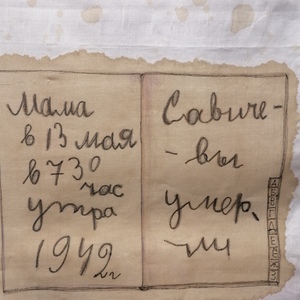 Мама
в 13 мая
в 7 30
час
утра
1942 г
Савиче-
-вы
умер.
ли